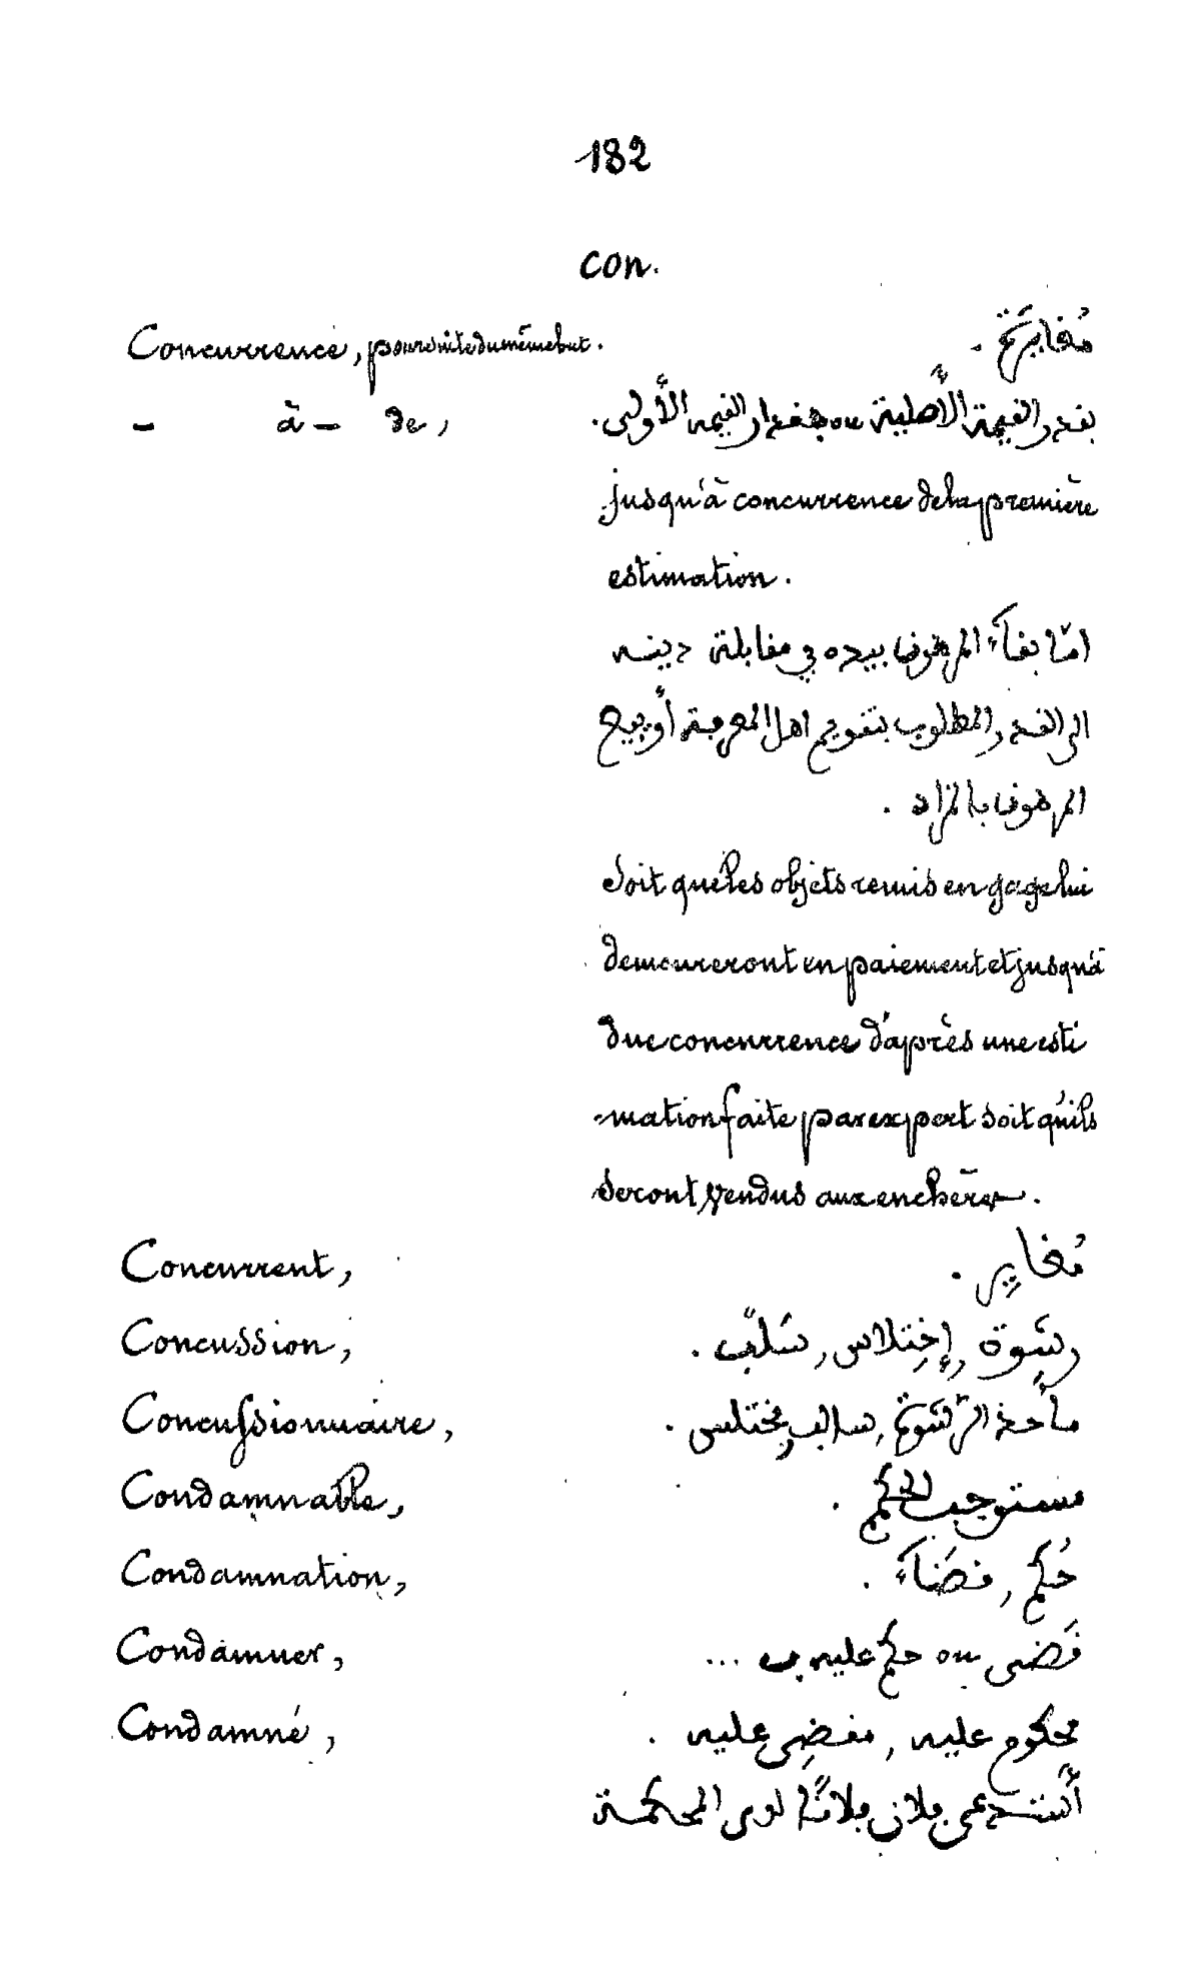 182
con.
Concurrence, poursuite du même but. مُغايَرَة .
- à - de, بقدر القيمة الأصلية ou بمقدار القيمة الأُولى.
jusqu'à concurrence de la première
estimation.
امّا بقآء المرهون بيده في مقابلة دينه
الى القدر المطلوب بتقويم اهل المعرفة أو ببيع
المرهون بالمزاد .
soit que les objets remis en gage lui
demeureront en paiement et jusqu'à
due concurrence d'après une esti
-mation faite par expert soit qu'ils
seront vendus aux enchères.
Concurrent, مُغايِر .
Concussion, رشوة, إختلاس, سَلْب .
Concussionnaire, مأخذ الرّشوة, سالب, مختلس .
Condamnable, مستوجب الحكم .
Condamnation, حُكم, قضَآء .
Condamner, قَضى ou حكم عليه ب ...
Condamné, محكوم عليه, مقضِى عليه .
أستدعى فلان فلانًا لدى المحكمة